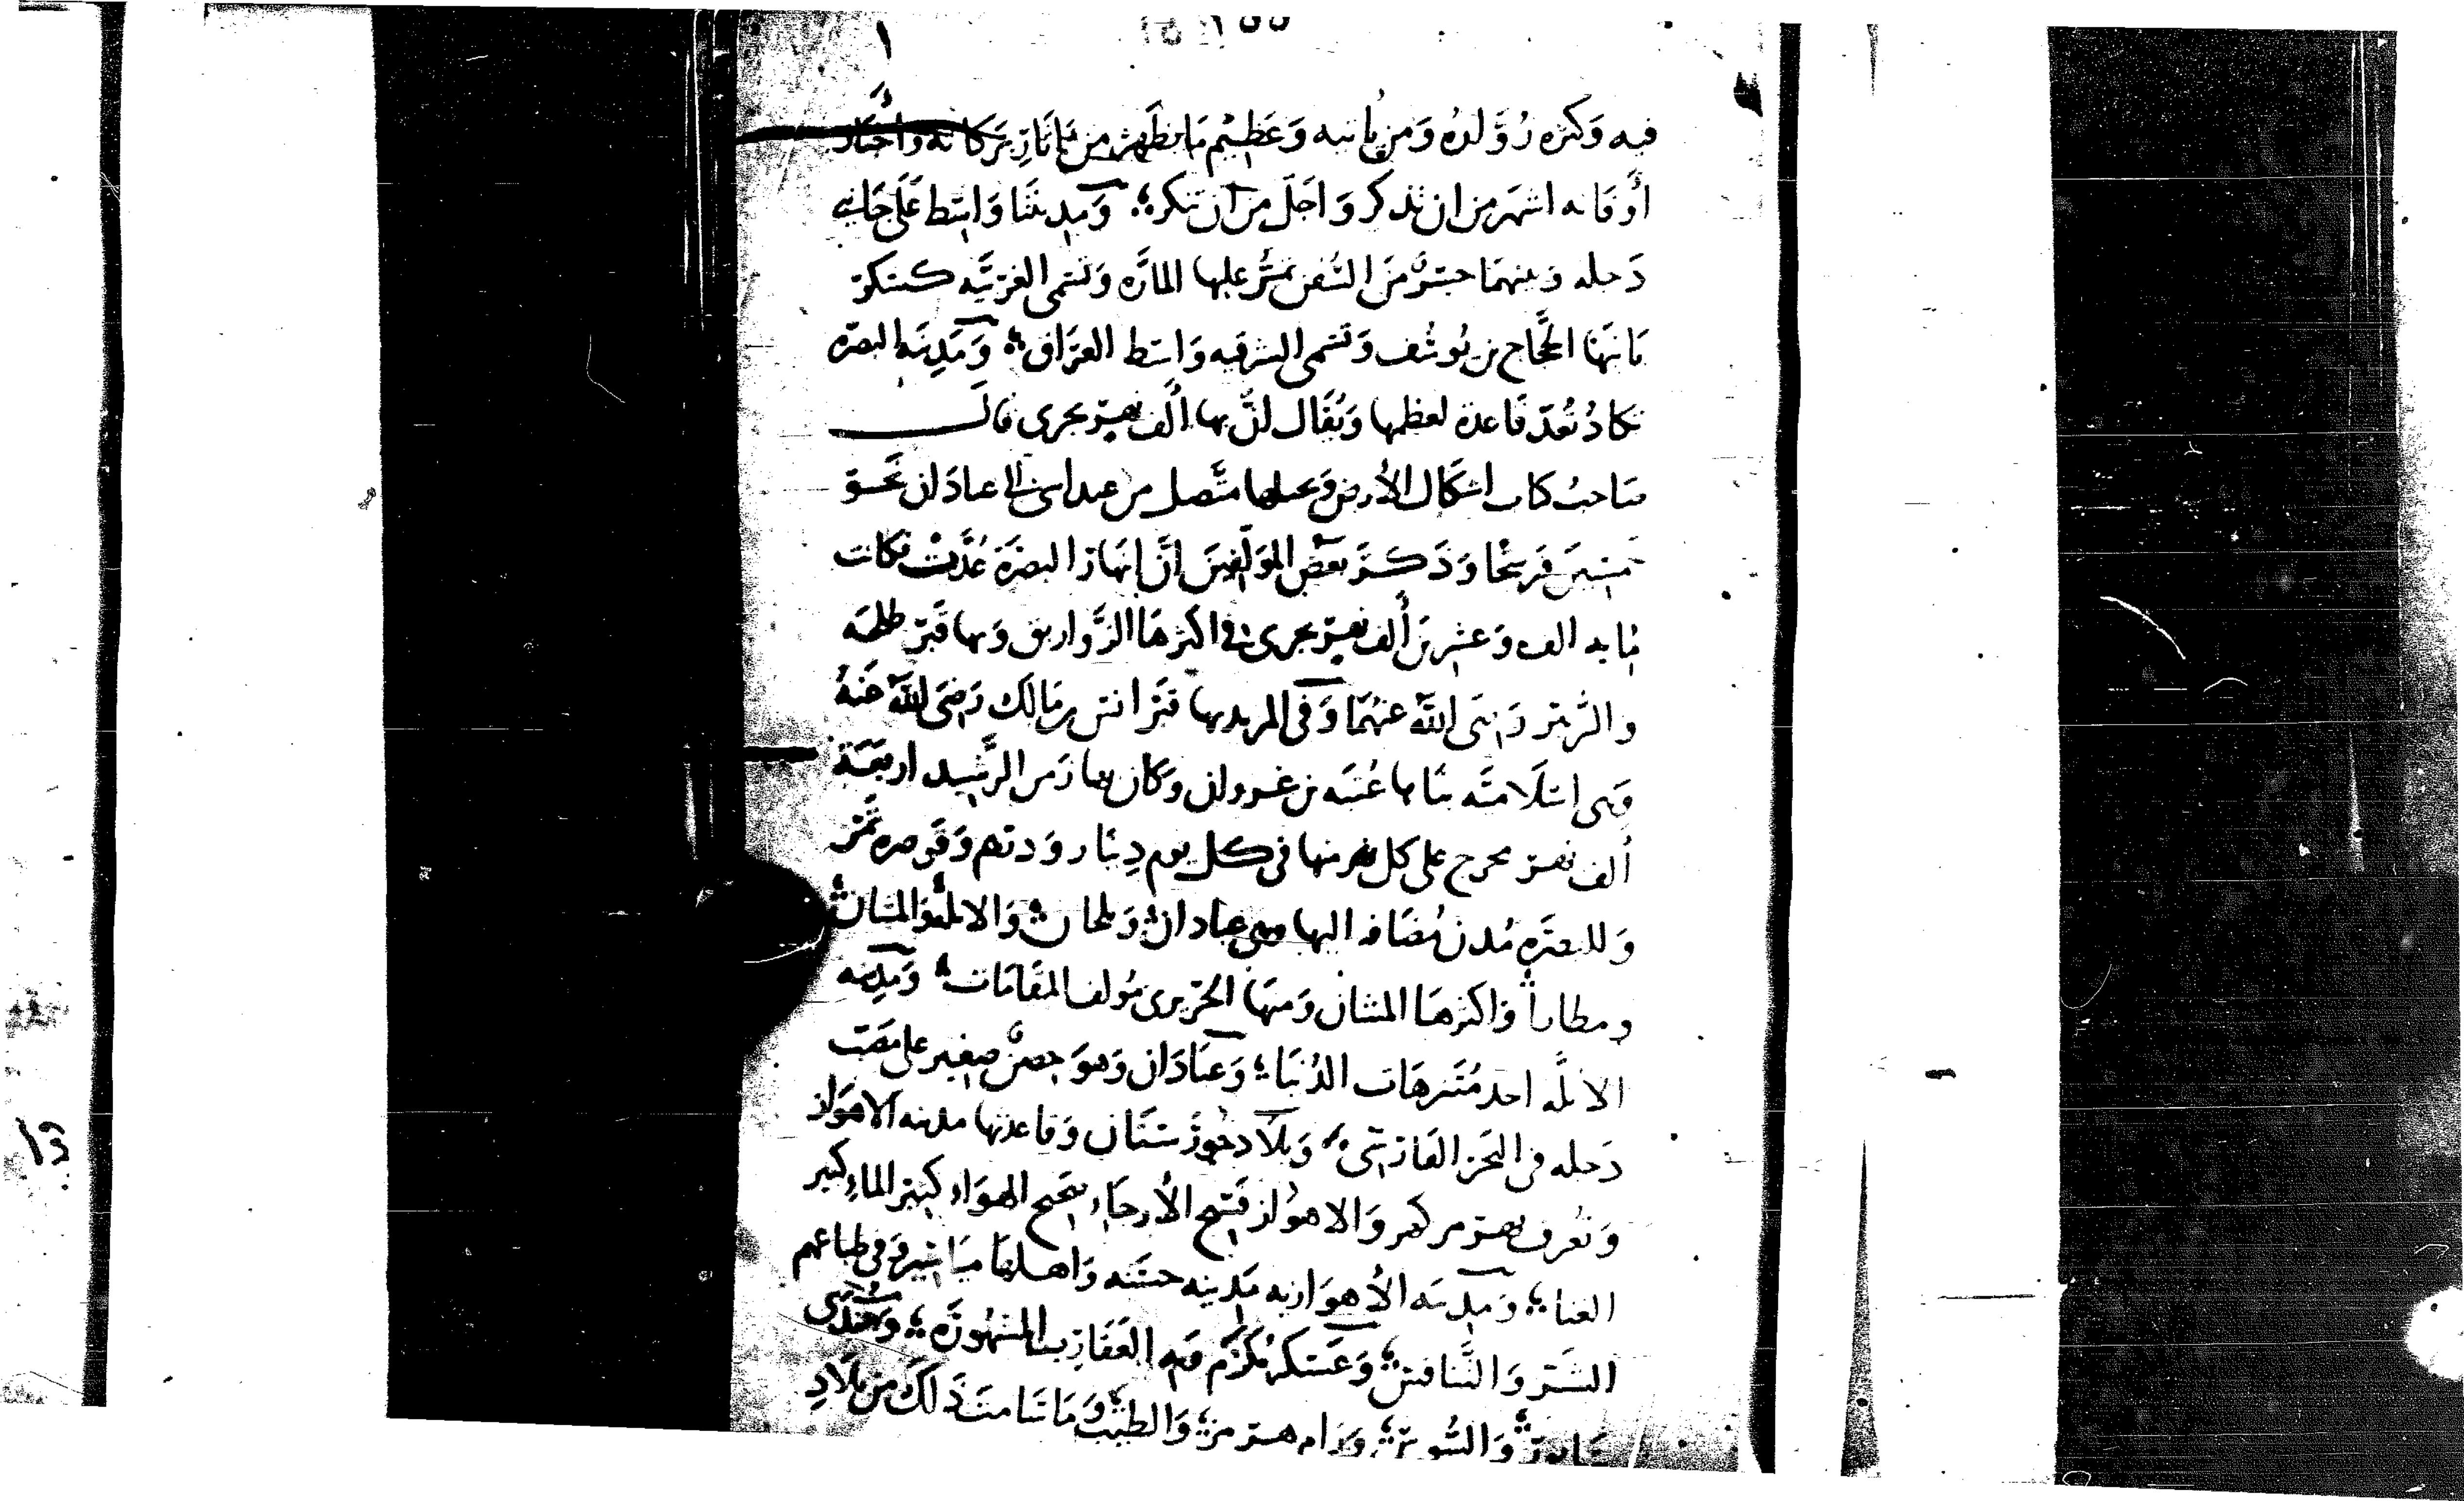 فيه وكثره زوّاره ومن ياتيه وعظيم ما يظهر من اثار بركاته واخبار
أوقاته اشهر من ان تذكر واجلّ من ان تنكر؛ ومدينتا واسط على جانبي
دجله وبينهما جسر من السفن تمرّ عليها المارّه وتسمى الغربيّه كسكر
بانيها الحجّاج بن يوسف وتسمى الشرقيه واسط العراق؛ ومدينه البصره
تكاد تُعدّ قاعدة لعظمها ويقال انّ بها ألف نهر يجرى قال
صاحب كتاب اشكال الأرض ونخيلها متّصل من عبداسى الى عبادان نحو
خمسين فرسخا وذكر بعض المؤلّفين انّ انهار البصرة عُدّت فكانت
مايه الف وعشرين ألف نهر يجرى فى اكثرها الزّواريق وبها قبر طلحه
والزبير رضى الله عنهما وفى المربد بها قبر انس بن مالك رضى الله عنه
وهى اسلاميّه بناها عُتبه بن غزوان وكان بها زمن الرّشيد اربعة
ألف نهر يخرج على كل نهر منها فى كل يوم دينار ودرهم وقوصره تمر
وللبصره مُدن مُضافه اليها وهى عبادان والابلّه والمشان
ومطارا واكبرها المشان ومنها الحريرى مؤلف المقامات؛ ومدينه
الابلّه احد متنزهات الدُنيا؛ وعبّادان وهو حصن صغير على مصبّ
دجله فى البحر الفارسىّ؛ وبلاد خوزستان وقاعدتها مدينه الاهواز
وتُعرف بهرمز والاهواز فسيح الأرجاء صحيح الهواء كثير الماء كثير
الغنا؛ ومدينه الأهواز به مدينه حسنه واهلها مياسير وفى طباعهم
الشر والتّنافس؛ وعسكر مُكرَم فيه العقارب المشهورة؛ وجُندى
سابور والسّوس ورام هرمز؛ والطيب وما تيامن ذلك من بلاد